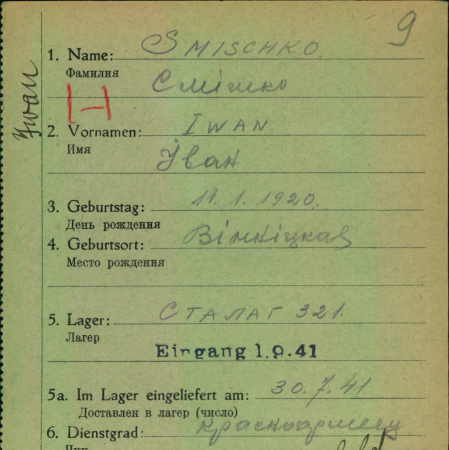 9
1. Name: SMISCHKO.
Фамилия Смішко
Н
2. Vornamen: IWAN.
Имя Іван
3. Geburtstag: 11. 1. 1920.
День рождения
4. Geburtsort: Вінніцкая
Место рождения
5. Lager: СТАЛАГ 321.
Лагер
Eingang 1.9.41
5a. Im Lager eingeliefert am: 30.7.41
Доставлен в лагер (число)
6. Dienstgrad: красноармеец
Чин